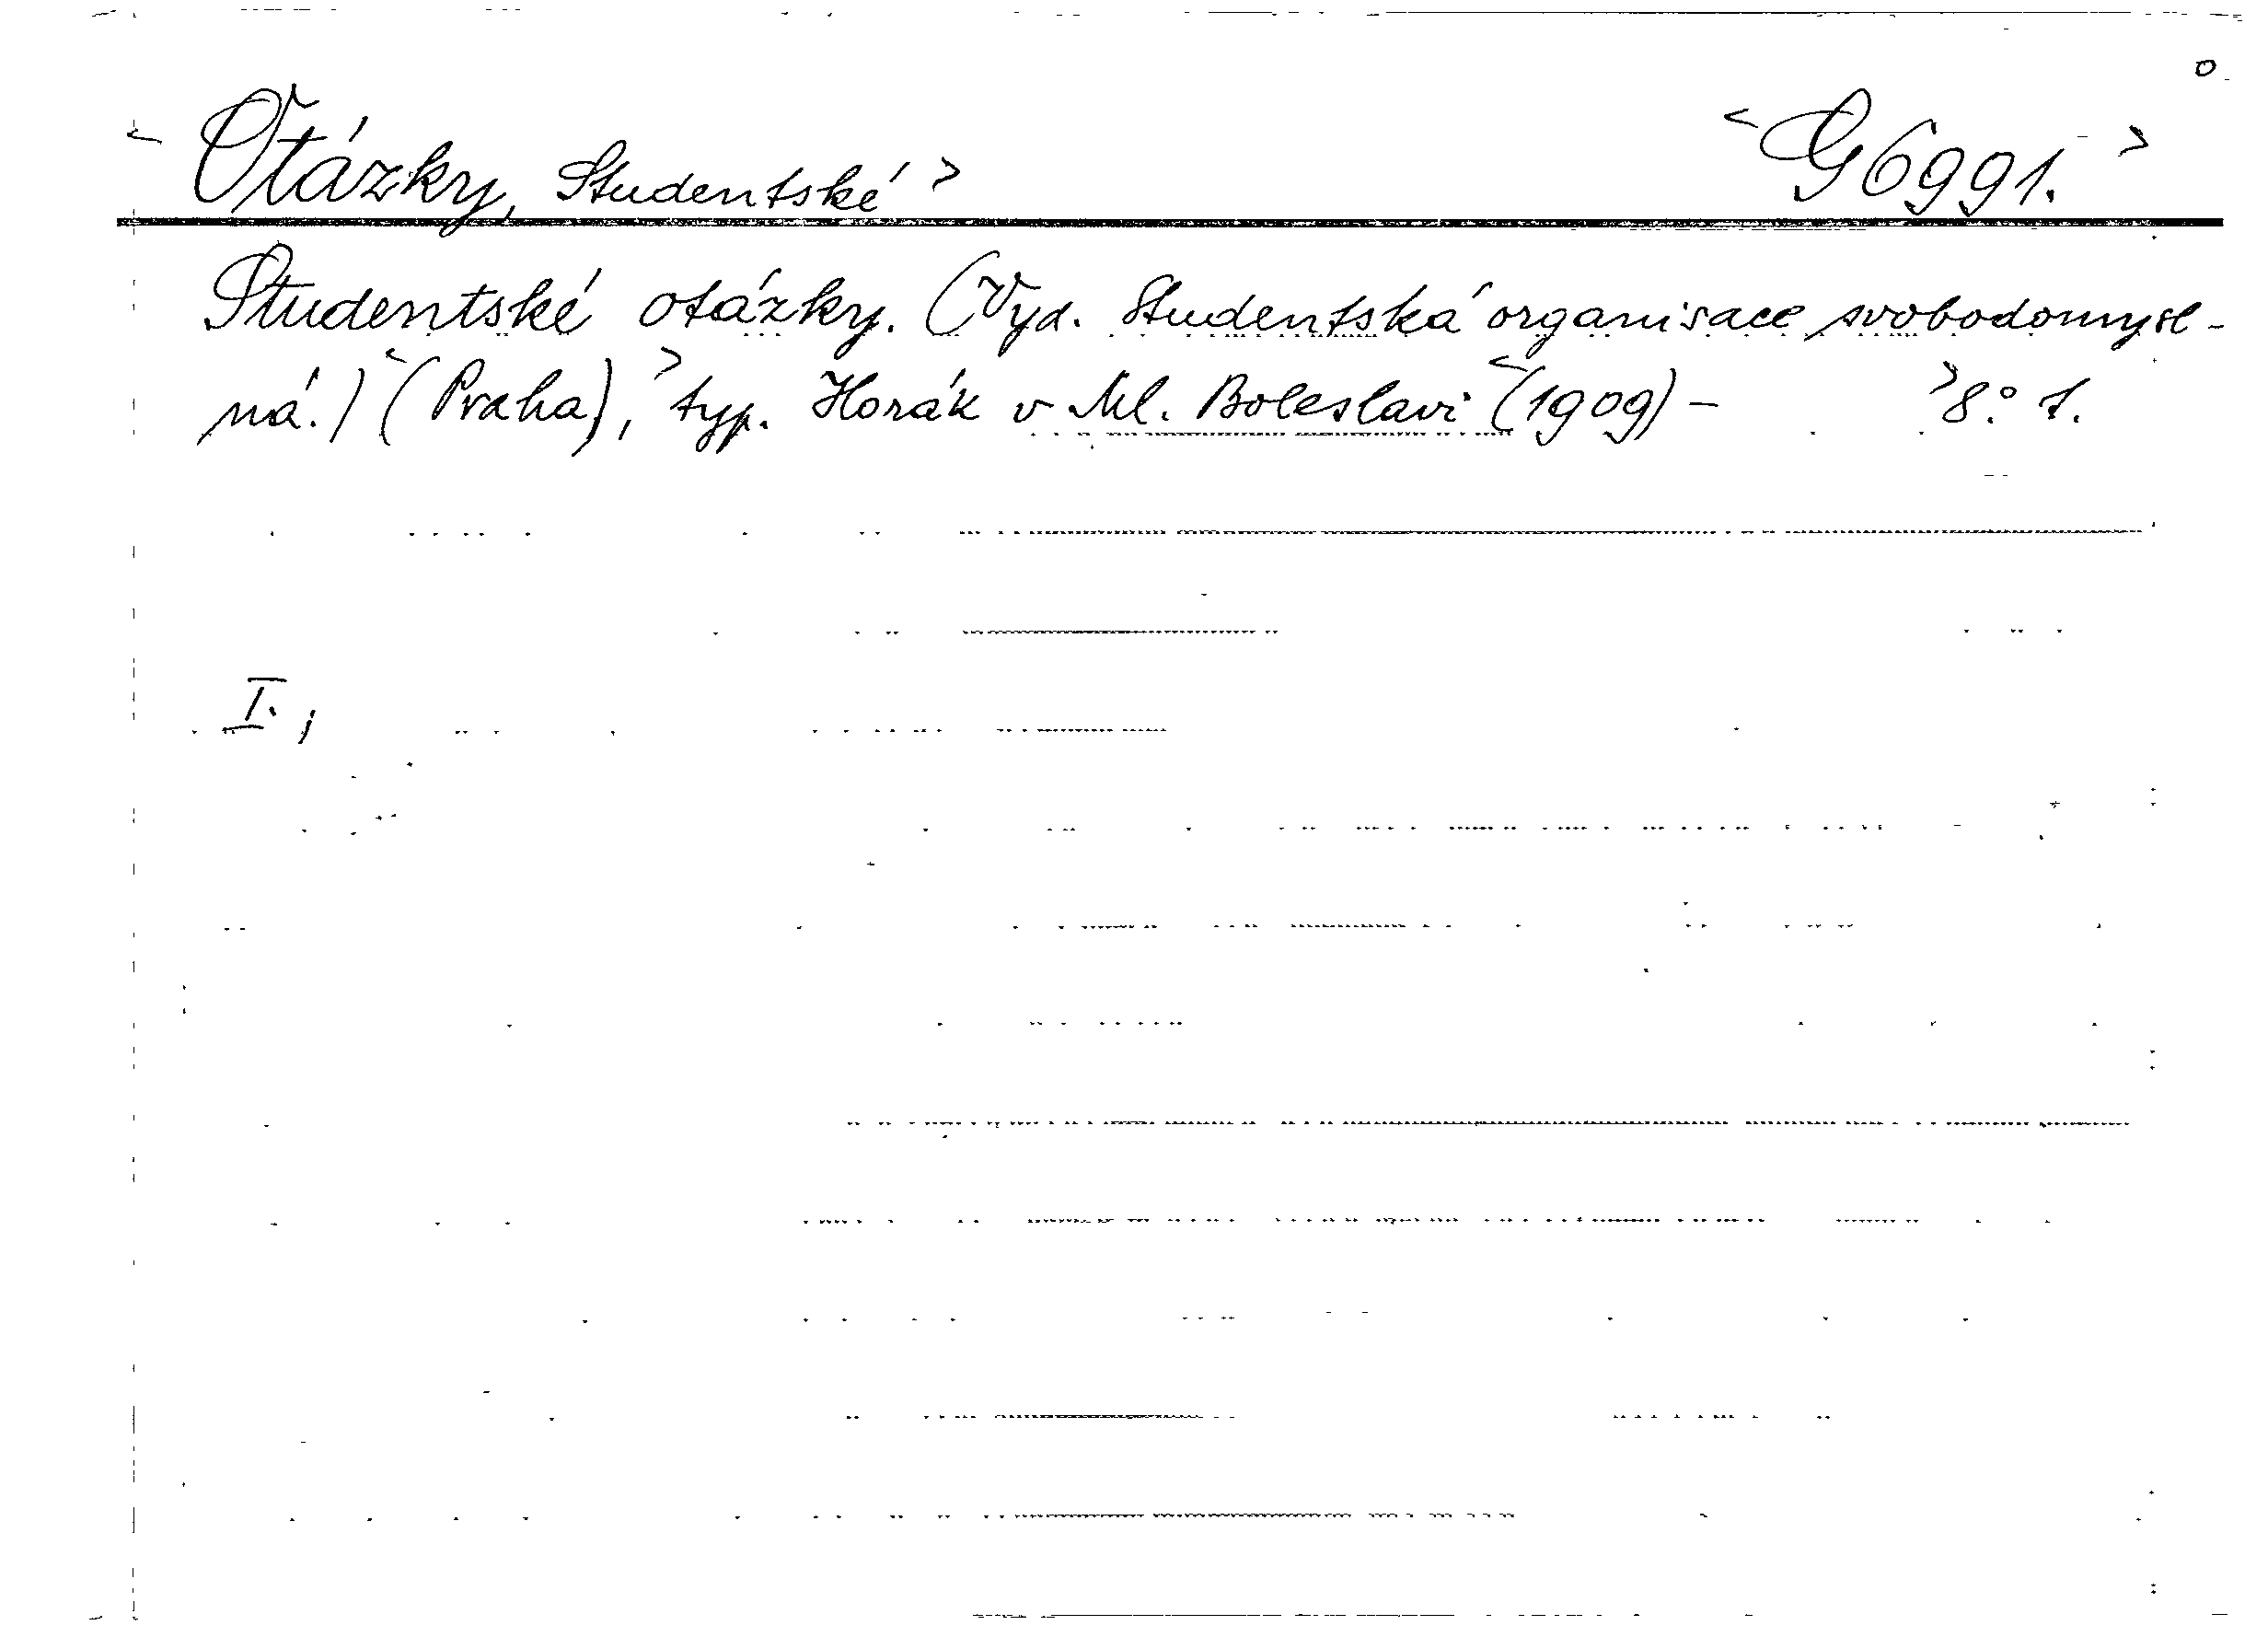 < Otázky, Studentské > < G 6991. >
Studentské otázky. (Vyd. Studentská organisace svobodomysl-
ná.) < (Praha), > typ. Horák v Ml. Boleslavi < (1909) - > 8° 1.
I. ;